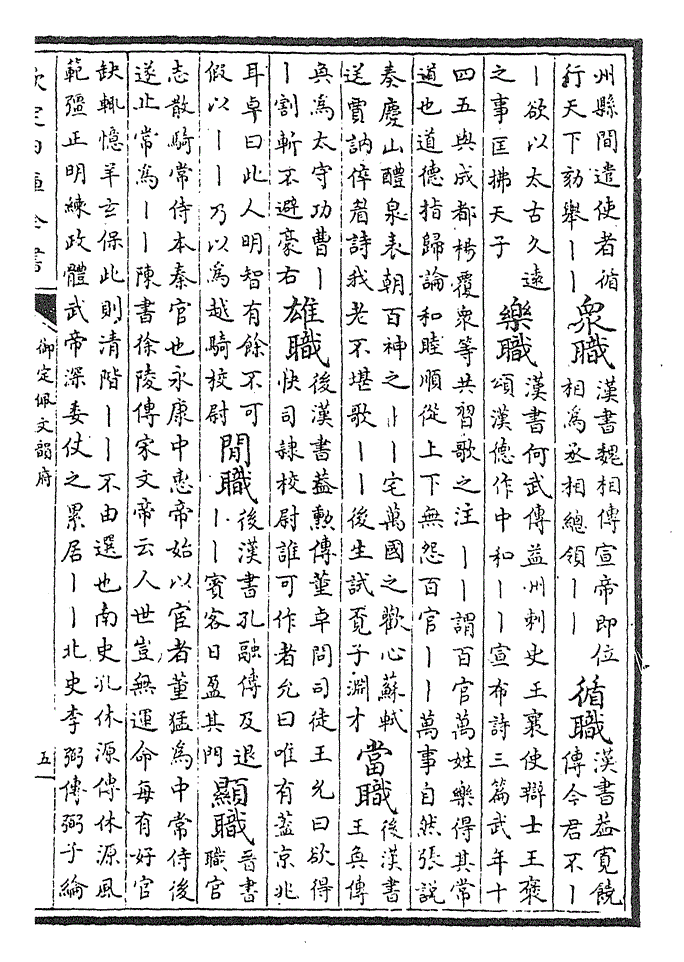 州縣間遣使者循
行天下劾舉丨丨
衆職
漢書魏相傳宣帝即位
相為丞相總領丨丨
循職
漢書葢寛饒
傳今君不丨
丨欲以太古久遠
之事匡拂天子
樂職
漢書何武傳益州刺史王襄使辯士王褒
頌漢德作中和丨丨宣布詩三篇武年十
四五與成都楊覆衆等共習歌之注丨丨謂百官萬姓樂得其常
道也道德指歸論和睦順從上下無怨百官丨丨萬事自然張說
奏慶山醴泉表朝百神之丨丨宅萬國之歡心蘇軾
送賈訥倅眉詩我老不堪歌丨丨後生試覔子淵才
當職
後漢書
王奐傳
奐為太守功曹丨
丨割斬不避豪右
雄職
後漢書葢勲傳董卓問司徒王允曰欲得
快司隸校尉誰可作者允曰唯有葢京兆
耳卓曰此人明智有餘不可
假以丨丨乃以為越騎校尉
閒職
後漢書孔融傳及退
丨丨賓客日盈其門
顯職
晉書
職官
志散騎常侍本秦官也永康中惠帝始以宦者董猛為中常侍後
遂止常為丨丨陳書徐陵傳宋文帝云人世豈無運命每有好官
缺輒憶羊玄保此則清階丨丨不由選也南史孔休源傳休源風
範彊正明練政體武帝深委仗之累居丨丨北史李弼傳弼子綸
欽定四庫全書
御定佩文韻府
五